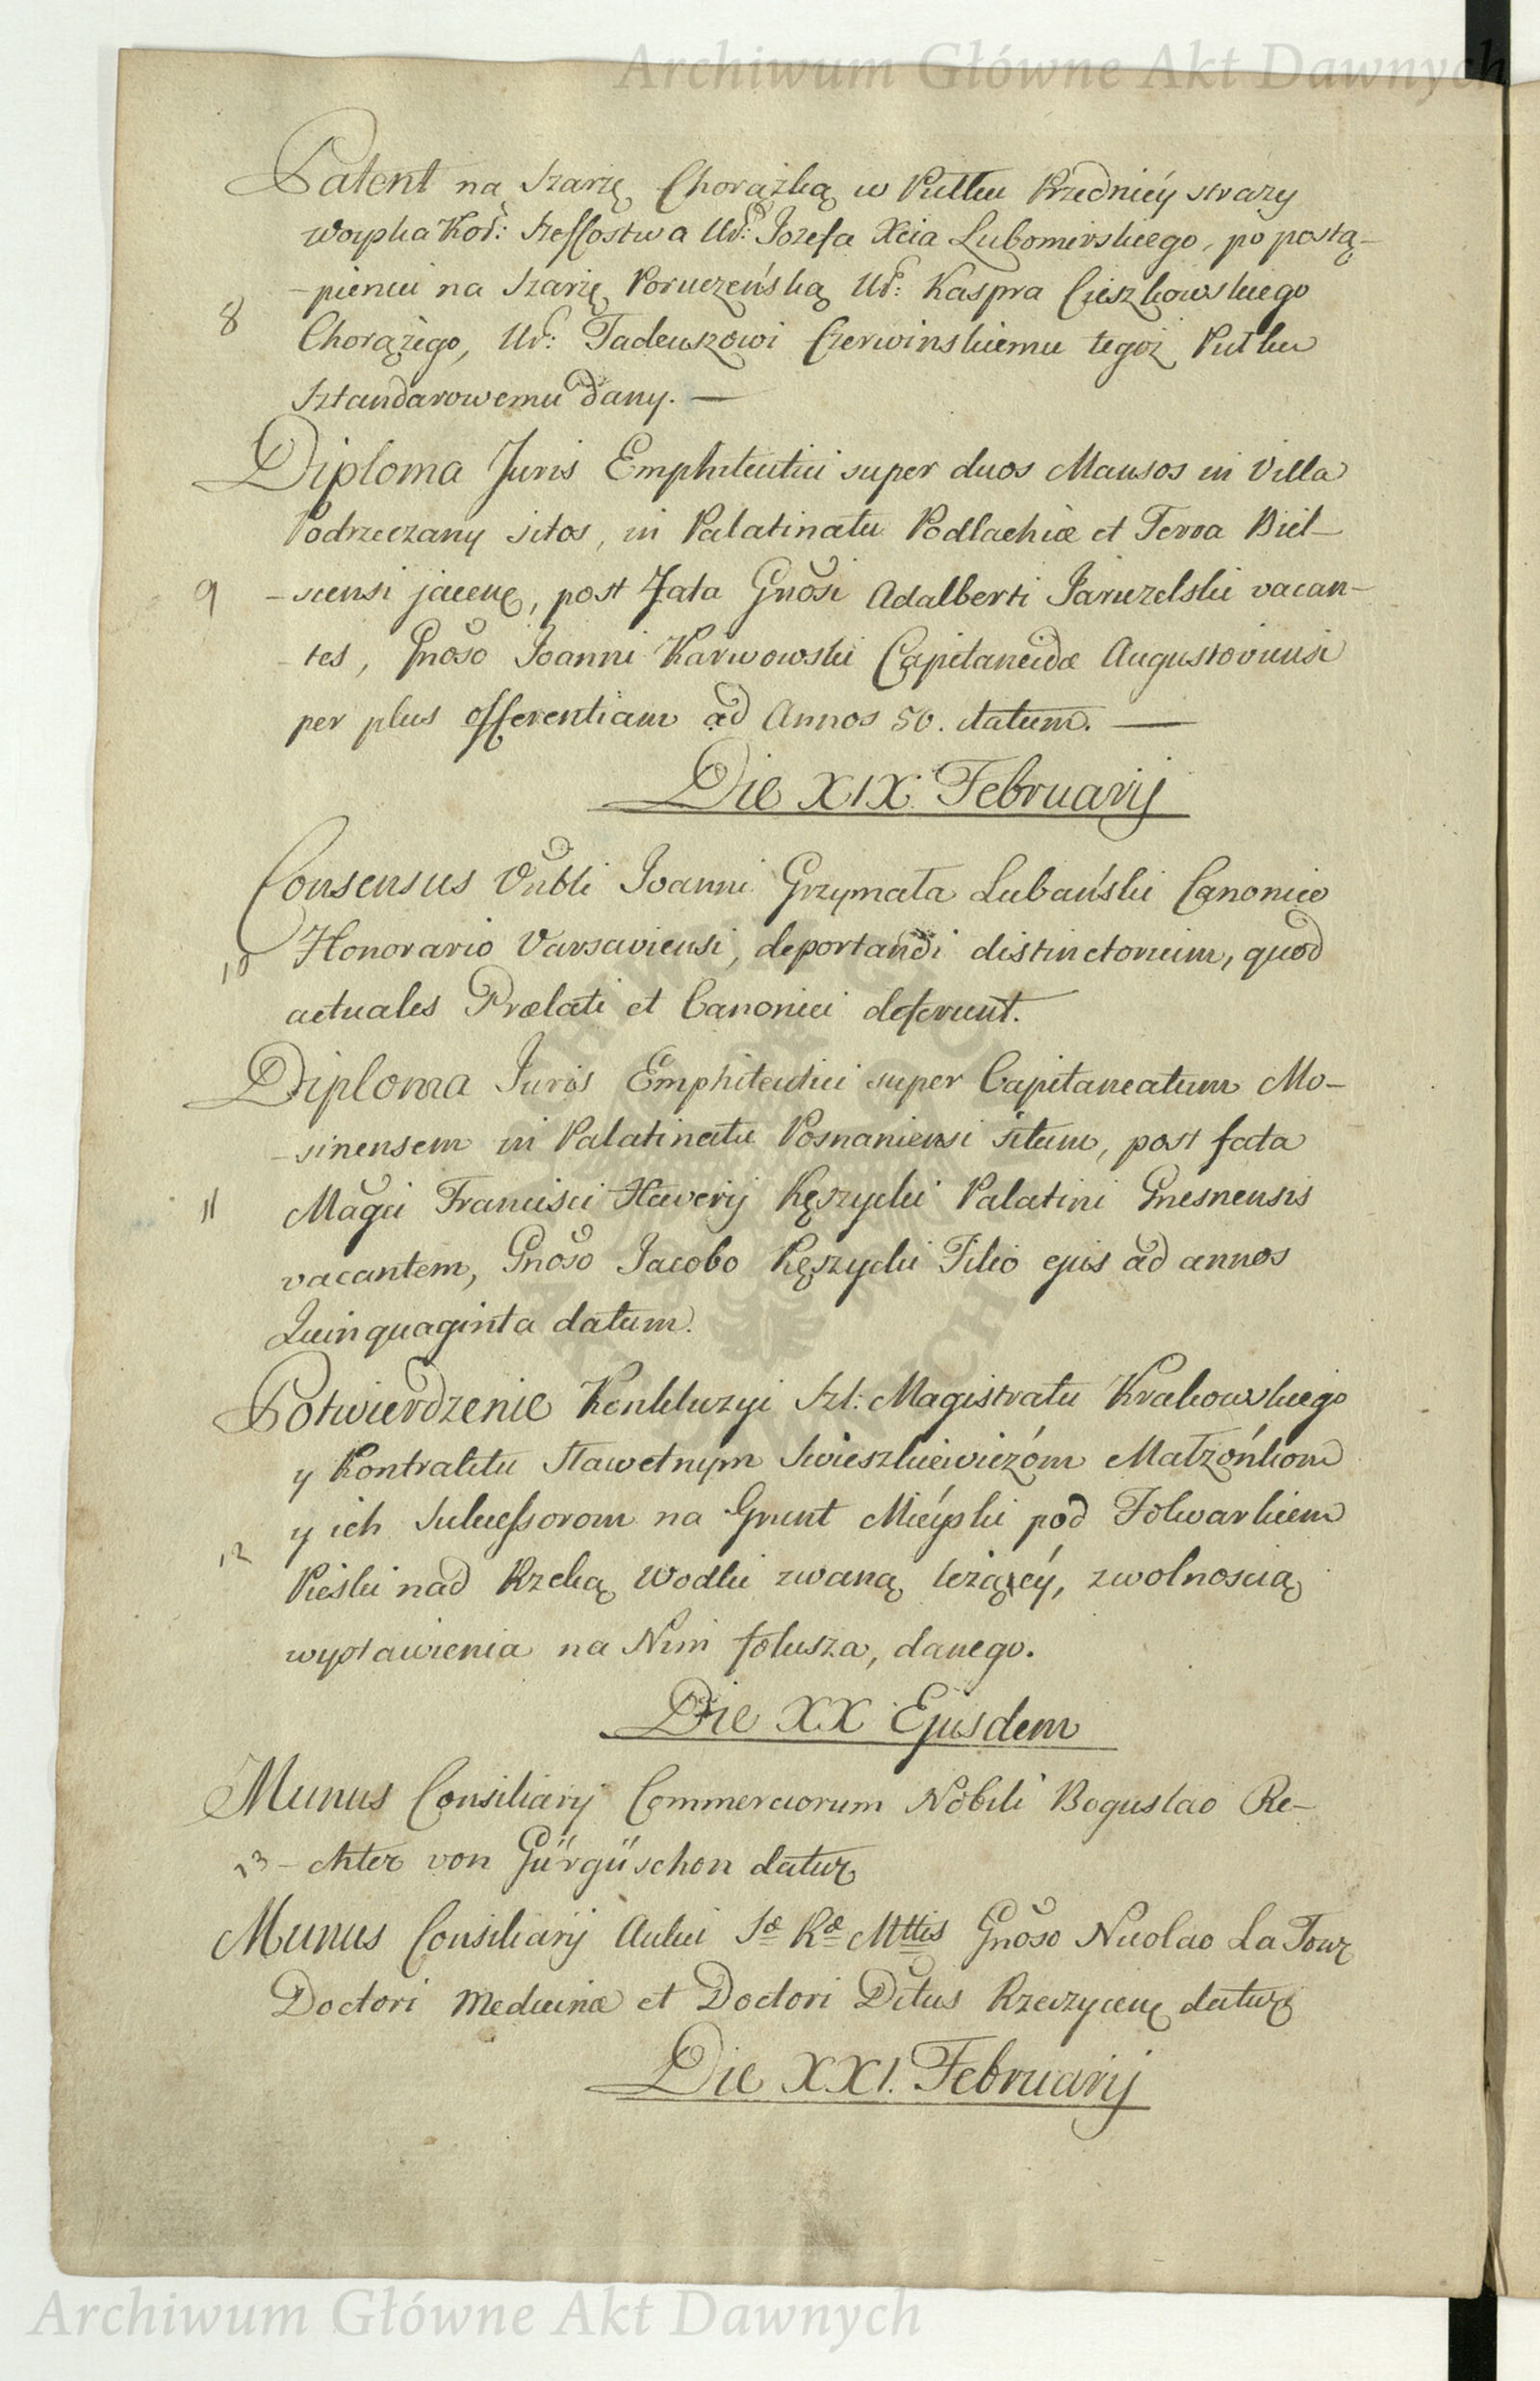 Archiwum Główne Akt Dawnych
Patent na Szarżę Chorążką w Pułku Przedniéy straży
Woyska Kor: Szeffostwa Ur: Jozefa Xcia Lubomirskiego, po postą-
-pieniu na Szarżę Poruczeńską Ur: Kaspra Cieszkowskiego
8 Chorążego, Ur: Tadeuszowi Czerwinskiemu tegoż Pułku
Sztandarowemu dany. —
Diploma Juris Emphiteutici super duos Mansos in Villa
Podrzeczany sitos, in Palatinatu Podlachiæ et Terra Biel-
9 -scensi jacen, post Fata Gnosi Adalberti Jaruzelski vacan-
-tes, Gnoso Joanni Karwowski Capitaneidæ Augustoviensi
per plus offerentiam ad Annos 50. datum. —
Die XIX Februarij
Consensus Vnbli Joanni Grzymała Lubański Canonico
10 Honorario Varsaviensi, deportandi distinctorium, quod
actuales Prælati et Canonici deferunt.
Diploma Juris Emphiteutici super Capitaneatum Mo-
-sinensem in Palatinatu Posnaniensi situm, post fata
11 Magci Francisci Xaverij Kęszycki Palatini Gnesnensis
vacantem, Gnoso Jacobo Kęszycki Filio ejus ad annos
Quinquaginta datum.
Potwierdzenie Konkluzyi Szl: Magistratu Krakowskiego
y Kontraktu Sławetnym Swieszkiewiczóm Małżónkom
y ich Sukcessorom na Grunt Mieyski pod Folwarkiem
12 Pieski nad Rzeką Wodki zwaną leżącéy, zwolnoscią
wystawienia na Nim folusza, danego.
Die XX Ejusdem
Munus Consiliarij Commerciorum Nobili Boguslao Re-
13 -chter von Gürgüschon datur
Munus Consiliarij Aulici Sæ Ræ Mttis Gnoso Nicolao La Tour
Doctori Medicinæ et Doctori Ditus Rzeczycen datur
Die XXI. Februarij
Archiwum Główne Akt Dawnych